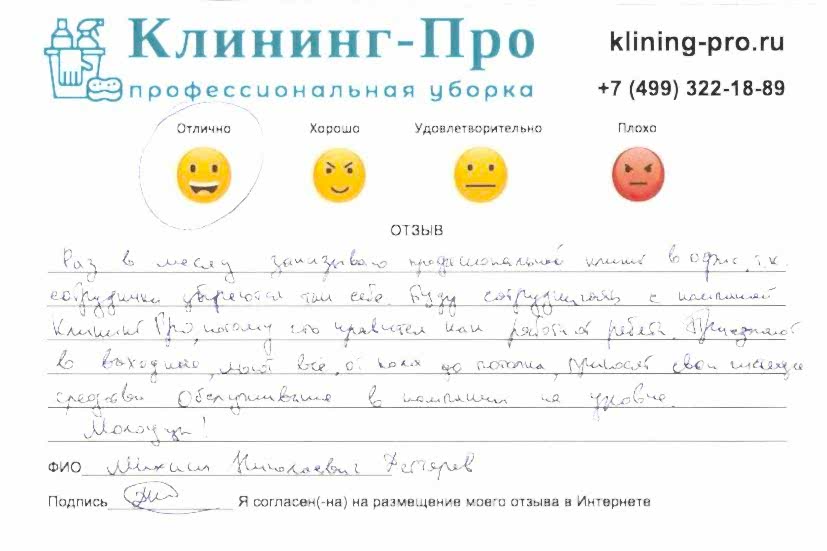 Клининг-Про
профессиональная уборка
klining-pro.ru
+7 (499) 322-18-89
Отлично Хорошо Удовлетворительно Плохо
ОТЗЫВ
Раз в месяц заказываю профессиональный клининг в офис, т.к.
сотрудники убираются так себе. Буду сотрудничать с компанией
Клининг Про, потому что нравится как работают ребята. Приезжают
в выходной, моют всё, от пола до потолка, привозят свои чистящие
средства. Обслуживание в компании на уровне.
Молодцы!
ФИО Михаил Николаевич
Подпись Я согласен(-на) на размещение моего отзыва в Интернете